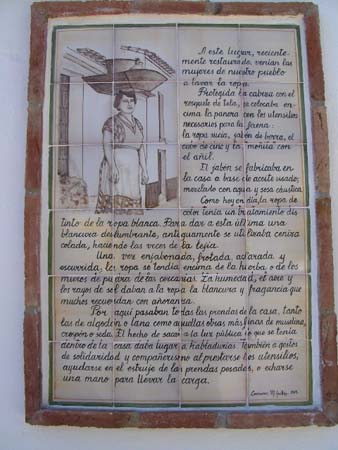 A este lugar, reciente-
mente restaurado, venían las
mujeres de nuestro pueblo
a lavar la ropa.
Protegida la cabeza con el
rosquete de tela, se colocaba en-
cima la panera con los utensilios
necesarios para la faena:
la ropa sucia, jabón de borra, el
cubo de cinc y la moñita con
el añil.
El jabón se fabricaba en
la casa a base de aceite usado,
mezclado con agua y sosa cáustica.
Como hoy en día, la ropa de
color tenía un tratamiento dis
tinto de la ropa blanca. Para dar a esta última una
blancura deslumbrante, antiguamente se utilizaba ceniza
colada, haciendo las veces de la lejía.
Una vez enjabonada, frotada, aclarada y
escurrida, la ropa se tendía encima de la hierba o de los
muros de piedra de las cercanías. La humedad, el aire y
los rayos de sol daban a la ropa la blancura y fragancia que
muchos recuerdan con añoranza.
Por aquí pasaban todas las prendas de la casa, tanto
las de algodón o lana como aquellas otras más finas de muselina,
crespón o seda. El hecho de sacar a la luz pública lo que se tenía
dentro de la casa daba lugar a habladurías. También a gestos
de solidaridad y compañerismo al prestarse los utensilios,
ayudarse en el estruje de las prendas pesadas, o echarse
una mano para llevar la carga.